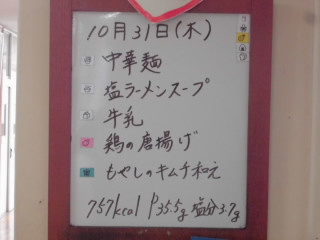 10月31日(木)
中華麺
塩ラーメンスープ
牛乳
鶏の唐揚げ
もやしのキムチ和え
757kcal P35.5g 塩分3.7g